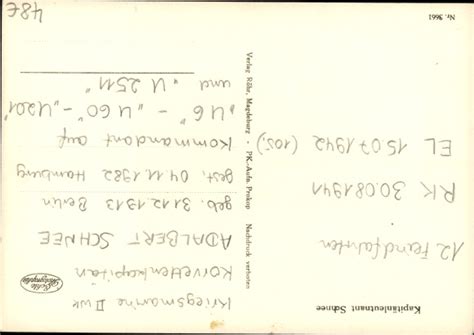 Kapitänleutnant Schnee
12 Feindfahrten
RK 30.08.1941
EL 15.07.1942 (105.)
Nr. 3661
Verlag Röhr, Magdeburg · PK.-Aufn. Prokop Nachdruck verboten
Kriegsmarine II WK
Korvettenkapitän
ADALBERT SCHNEE
geb. 31.12.1913 Berlin
gest. 04.11.1982 Hamburg
Kommandant auf
„U 6" - „U 60" - „U 201"
und „U 2511"
48€